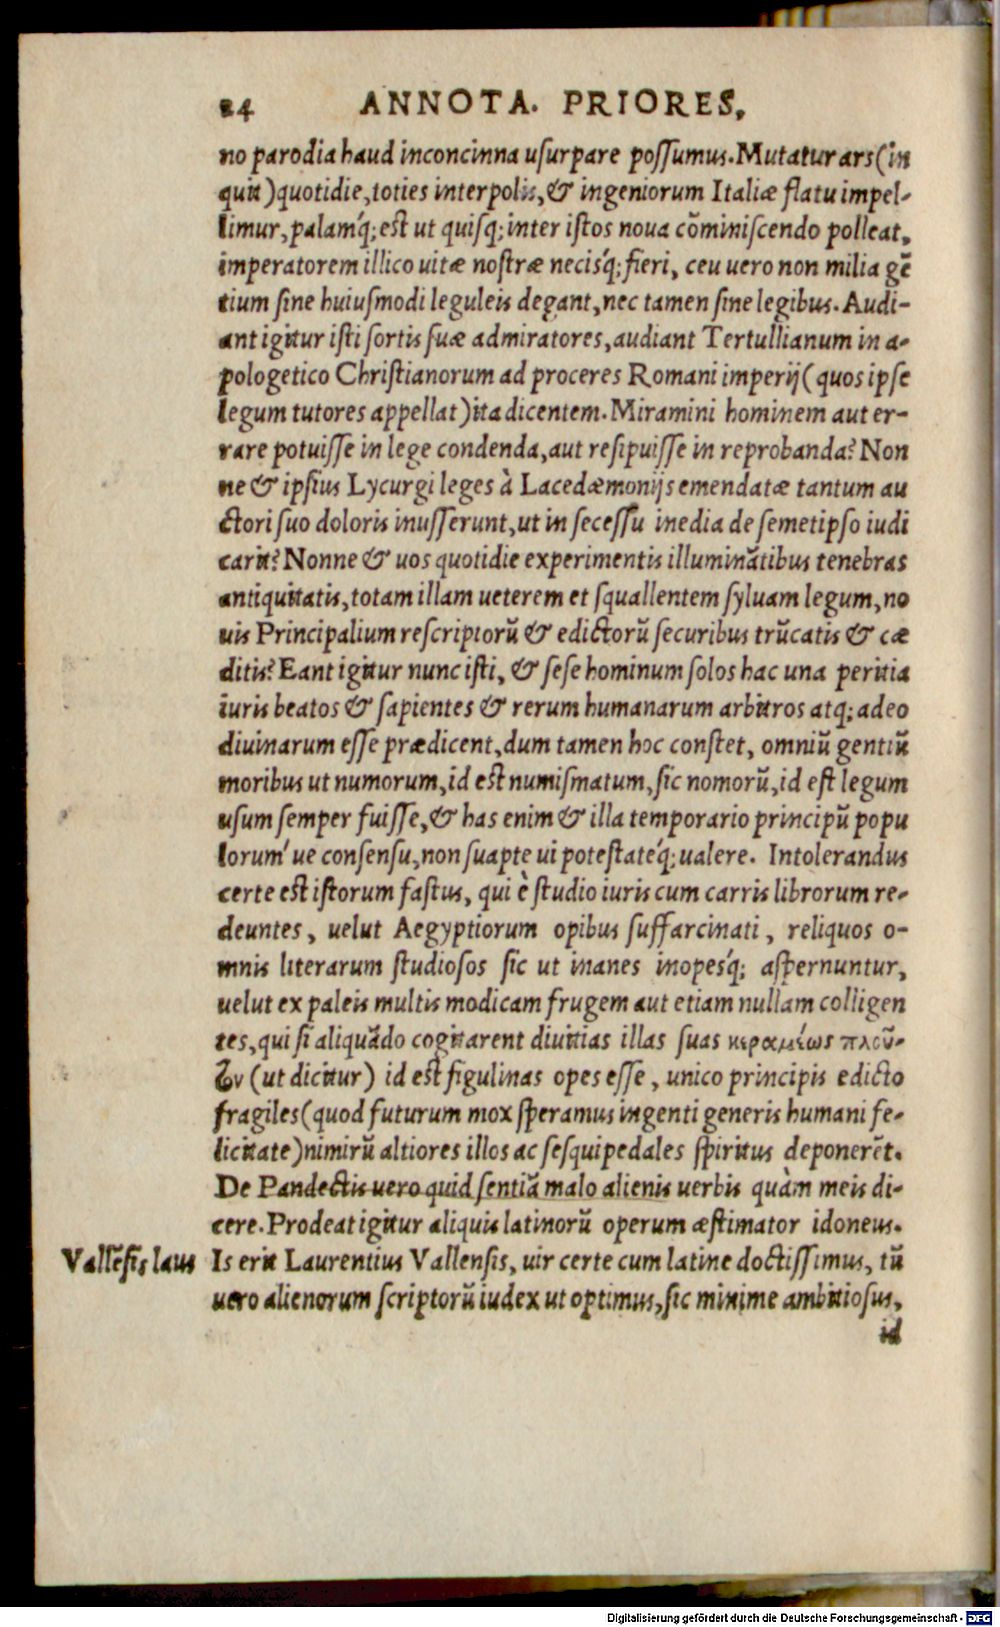 24 ANNOTA. PRIORES,
no parodia haud inconcinna usurpare possumus. Mutatur ars (in
quit) quotidie, toties interpolis, & ingeniorum Italiæ flatu impel-
limur, palamq́; est ut quisq; inter istos noua cõminiscendo polleat,
imperatorem illico uitæ nostræ necisq́; fieri, ceu uero non milia gẽ
tium sine huiusmodi leguleis degant, nec tamen sine legibus. Audi-
ant igitur isti sortis suæ admiratores, audiant Tertullianum in a-
pologetico Christianorum ad proceres Romani imperij (quos ipse
legum tutores appellat) ita dicentem. Miramini hominem aut er-
rare potuisse in lege condenda, aut resipuisse in reprobanda? Non
ne & ipsius Lycurgi leges à Lacedæmonijs emendatæ tantum au
ctori suo doloris inusserunt, ut in secessu inedia de semetipso iudi
carit? Nonne & uos quotidie experimentis illuminãtibus tenebras
antiquitatis, totam illam ueterem et squallentem syluam legum, no
uis Principalium rescriptorũ & edictorũ securibus trũcatis & cæ
ditis? Eant igitur nunc isti, & sese hominum solos hac una peritia
iuris beatos & sapientes & rerum humanarum arbitros atq; adeo
diuinarum esse prædicent, dum tamen hoc constet, omniũ gentiũ
moribus ut numorum, id est numismatum, sic nomorũ, id est legum
usum semper fuisse, & has enim & illa temporario principũ popu
lorum´ue consensu, non suapte ui potestateq́; ualere. Intolerandus
certe est istorum fastus, qui è studio iuris cum carris librorum re-
deuntes, uelut Aegyptiorum opibus suffarcinati, reliquos o-
mnis literarum studiosos sic ut inanes inopesq́; aspernuntur,
uelut ex paleis multis modicam frugem aut etiam nullam colligen
tes, qui si aliquãdo cogitarent diuitias illas suas κεραμέως πλοῦ-
τον (ut dicitur) id est figulinas opes esse, unico principis edicto
fragiles (quod futurum mox speramus ingenti generis humani fe-
licitate) nimirũ altiores illos ac sesquipedales spiritus deponerẽt.
De Pandectis uero quid sentiã malo alienis uerbis quàm meis di-
cere. Prodeat igitur aliquis latinorũ operum æstimator idoneus.
Vallẽsis laus Is erit Laurentius Vallensis, uir certe cum latine doctissimus, tũ
uero alienorum scriptorũ iudex ut optimus, sic minime ambitiosus,
id
Digitalisierung gefördert durch die Deutsche Forschungsgemeinschaft - DFG